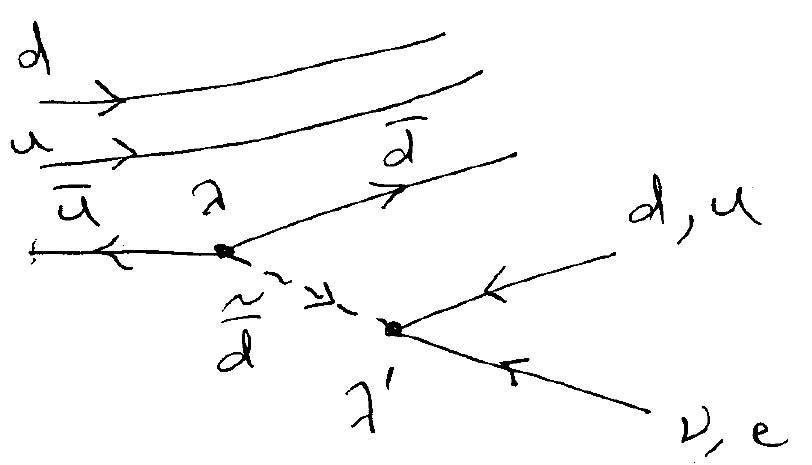 d
u
d̅
u̅
λ
d, u
d̃̅
λ'
ν, e